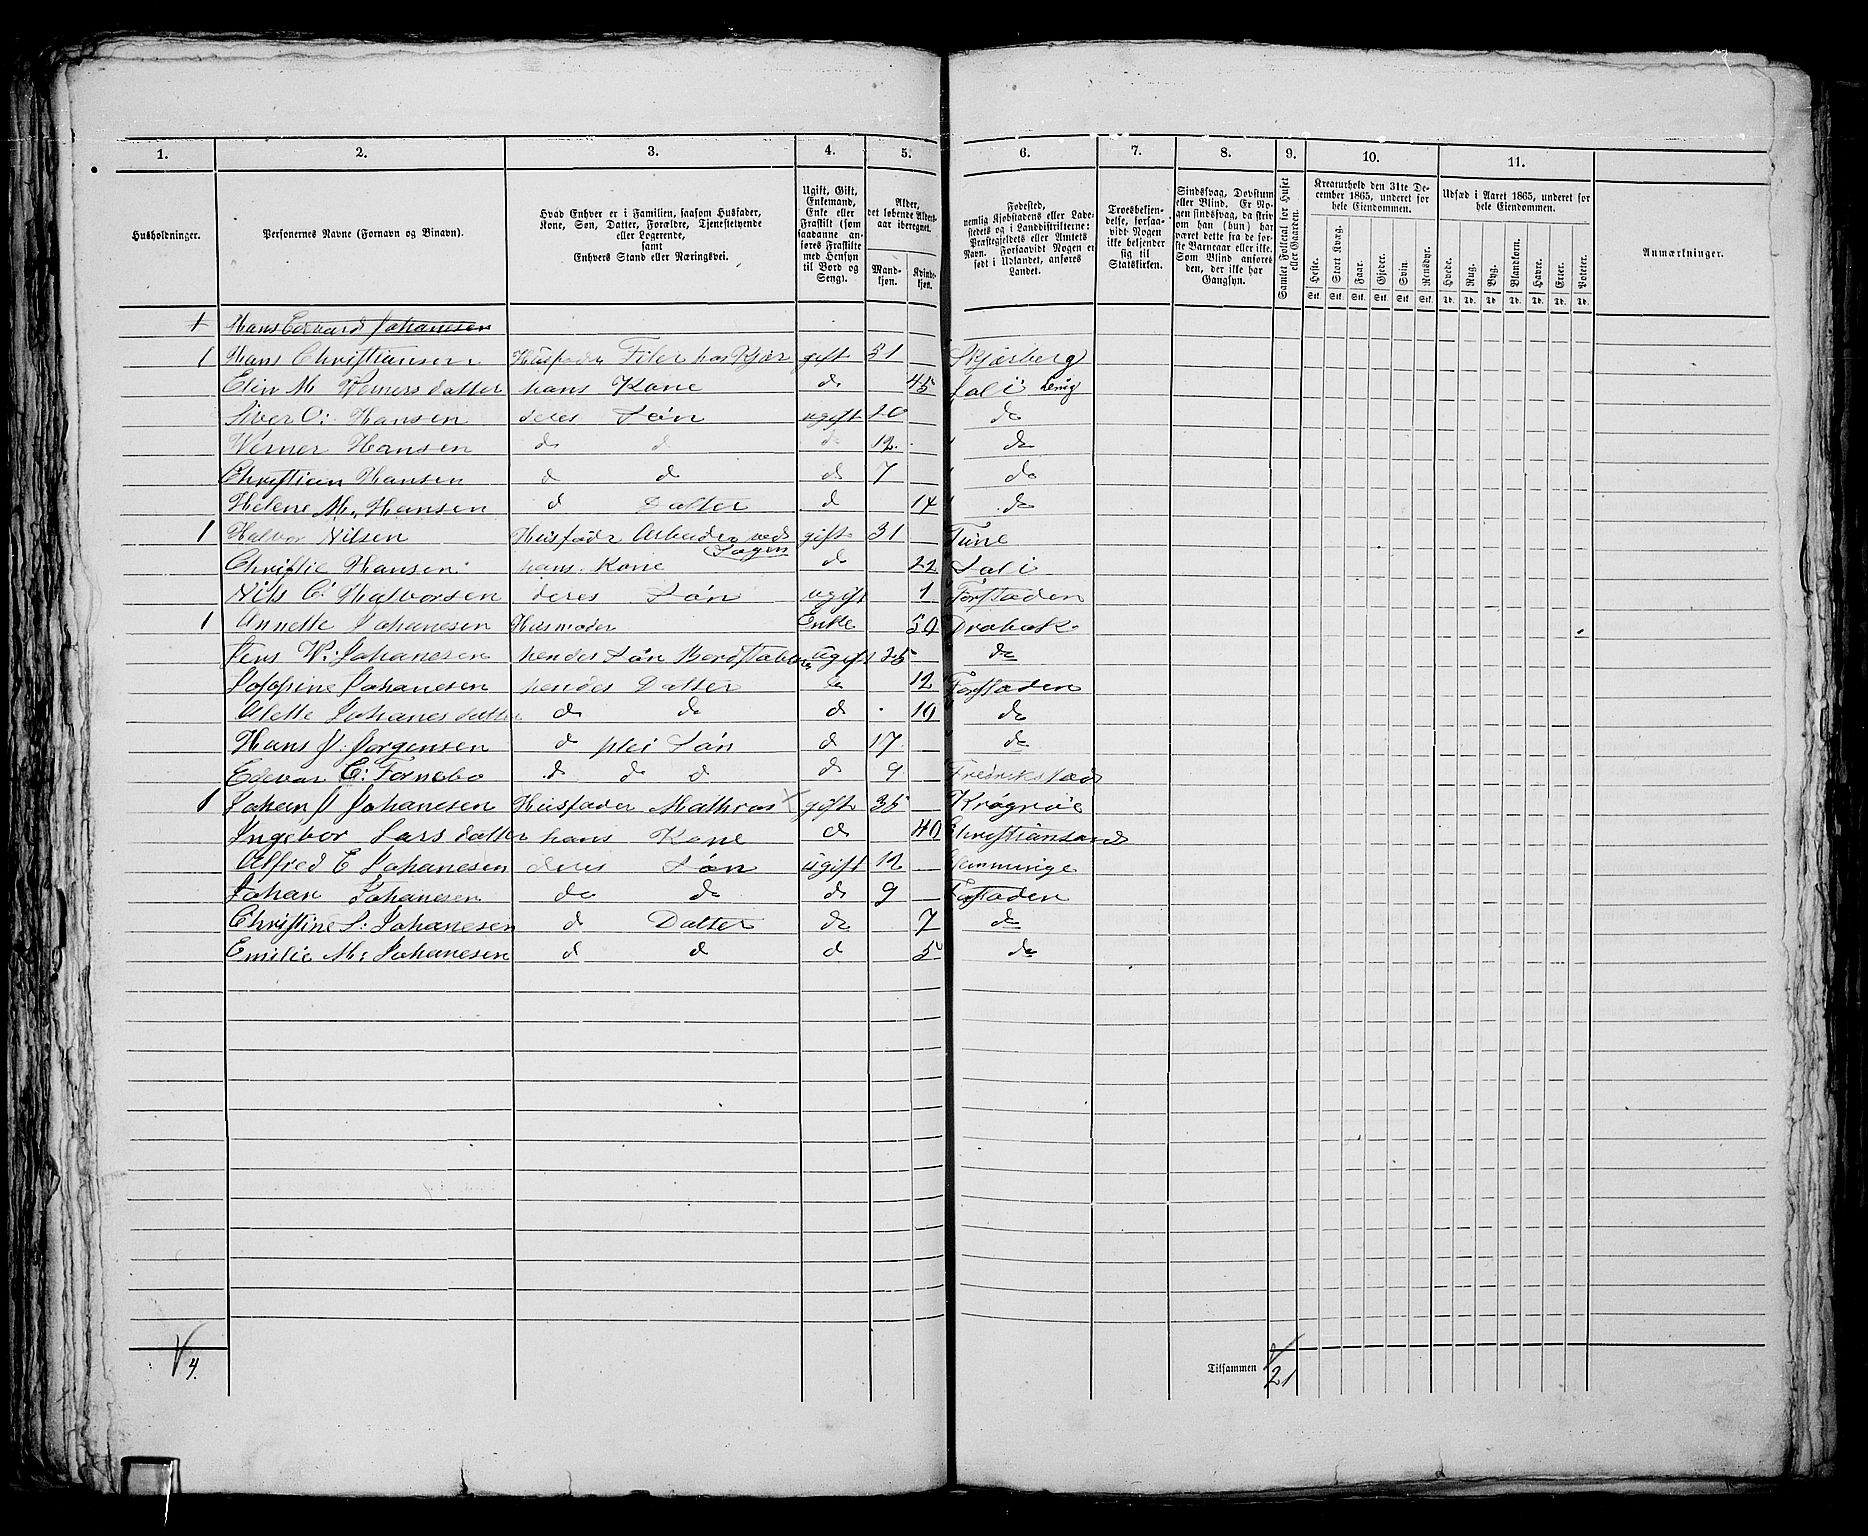 1. 2. 3. 4. 5. 6. 7. 8. 9. 10. 11.
Husholdninger.
Personernes Navne (Fornavn og Binavn).
Hvad Enhver er i Familien, saasom Husfader,
Kone, Søn, Datter, Forældre, Tjenestetyende
eller Logerende,
samt
Enhvers Stand eller Næringsvei.
Ugift, Gift,
Enkemand,
Enke eller
Fraskilt (som
saadanne an-
føres Fraskilte
med Hensyn
til Bord og
Seng).
Alder,
det løbende Alders-
aar iberegnet.
Mand-
kjøn.
Kvind-
kjøn.
Fødested,
nemlig Kjøbstadens eller Lade-
stedets og i Landdistrikterne:
Præstegjeldets eller Amtets
Navn. Forsaavidt Nogen er
født i Udlandet, anføres
Landet.
Troesbekjen-
delse, forsaa-
vidt Nogen
ikke bekjender
sig til
Statskirken.
Sindssvag, Døvstum
eller Blind. Er No-
gen sindssvag, da skriv
om han (hun) har
været dette fra de før-
ste Barneaar eller ikke.
Som Blind anføres
den, der ikke har
Gangsyn.
Samlet Folketal for Huset
eller Gaarden.
Kreaturhold den 31te De-
cember 1865, underet for
hele Eiendommen.
Heste. Stort Kvæg. Faar. Gjeder. Svin. Rensdyr.
Stk. Stk. Stk. Stk. Stk. Stk.
Udsæd i Aaret 1865, underet for
hele Eiendommen.
Hvede. Rug. Byg. Blandkorn. Havre. Erter. Poteter.
Td. Td. Td. Td. Td. Td. Td.
Anmærkninger.
1 Hans Edvard Johanesen
1 Hans Christiansen Husfader Filer hos Kjær gift 51 Skjæberg
Elen M Werners datter hans Kone do 45 Sali
Siver O: Hansen deres Søn ugift 20 do
Werner Hansen d d do 12 do
Christian Hansen d d d 7 do
Helene M. Hansen d Datter d 14 do
1 Halvor Nilsen Husfader Arbeider ved gift 31 Tune
Sagen
Christie Hansen hans Kone do 22 Sali
Nils C: Halvorsen deres Søn ugift 1 Forstaden
1 Annette Johanesen Husmoder Enke 50 Drøbak
Jens W: Johanesen hendes Søn ugift 25 do
Josefine Johanesen hendes Datter do 12 Forstaden
Alette Johanes datter d do d 10 do
Hans J: Jørgensen d plei Søn d 17 do
Edevar C: Fornebo d d d d 9 Fredrikstad
1 Johan J Johanesen Husfader Mathros gift 35 Krogrøe
Ingebor Lars datter hans Kone d 40 Christiansand
Alfred E Johanesen deres Søn ugift 12 Glemminge
Johan Johanesen do do d 9 Forstaden
Christine L: Johanesen d Datter do 7 do
Emilie M: Johanesen d d d 5 do
4.
Tilsammen 21